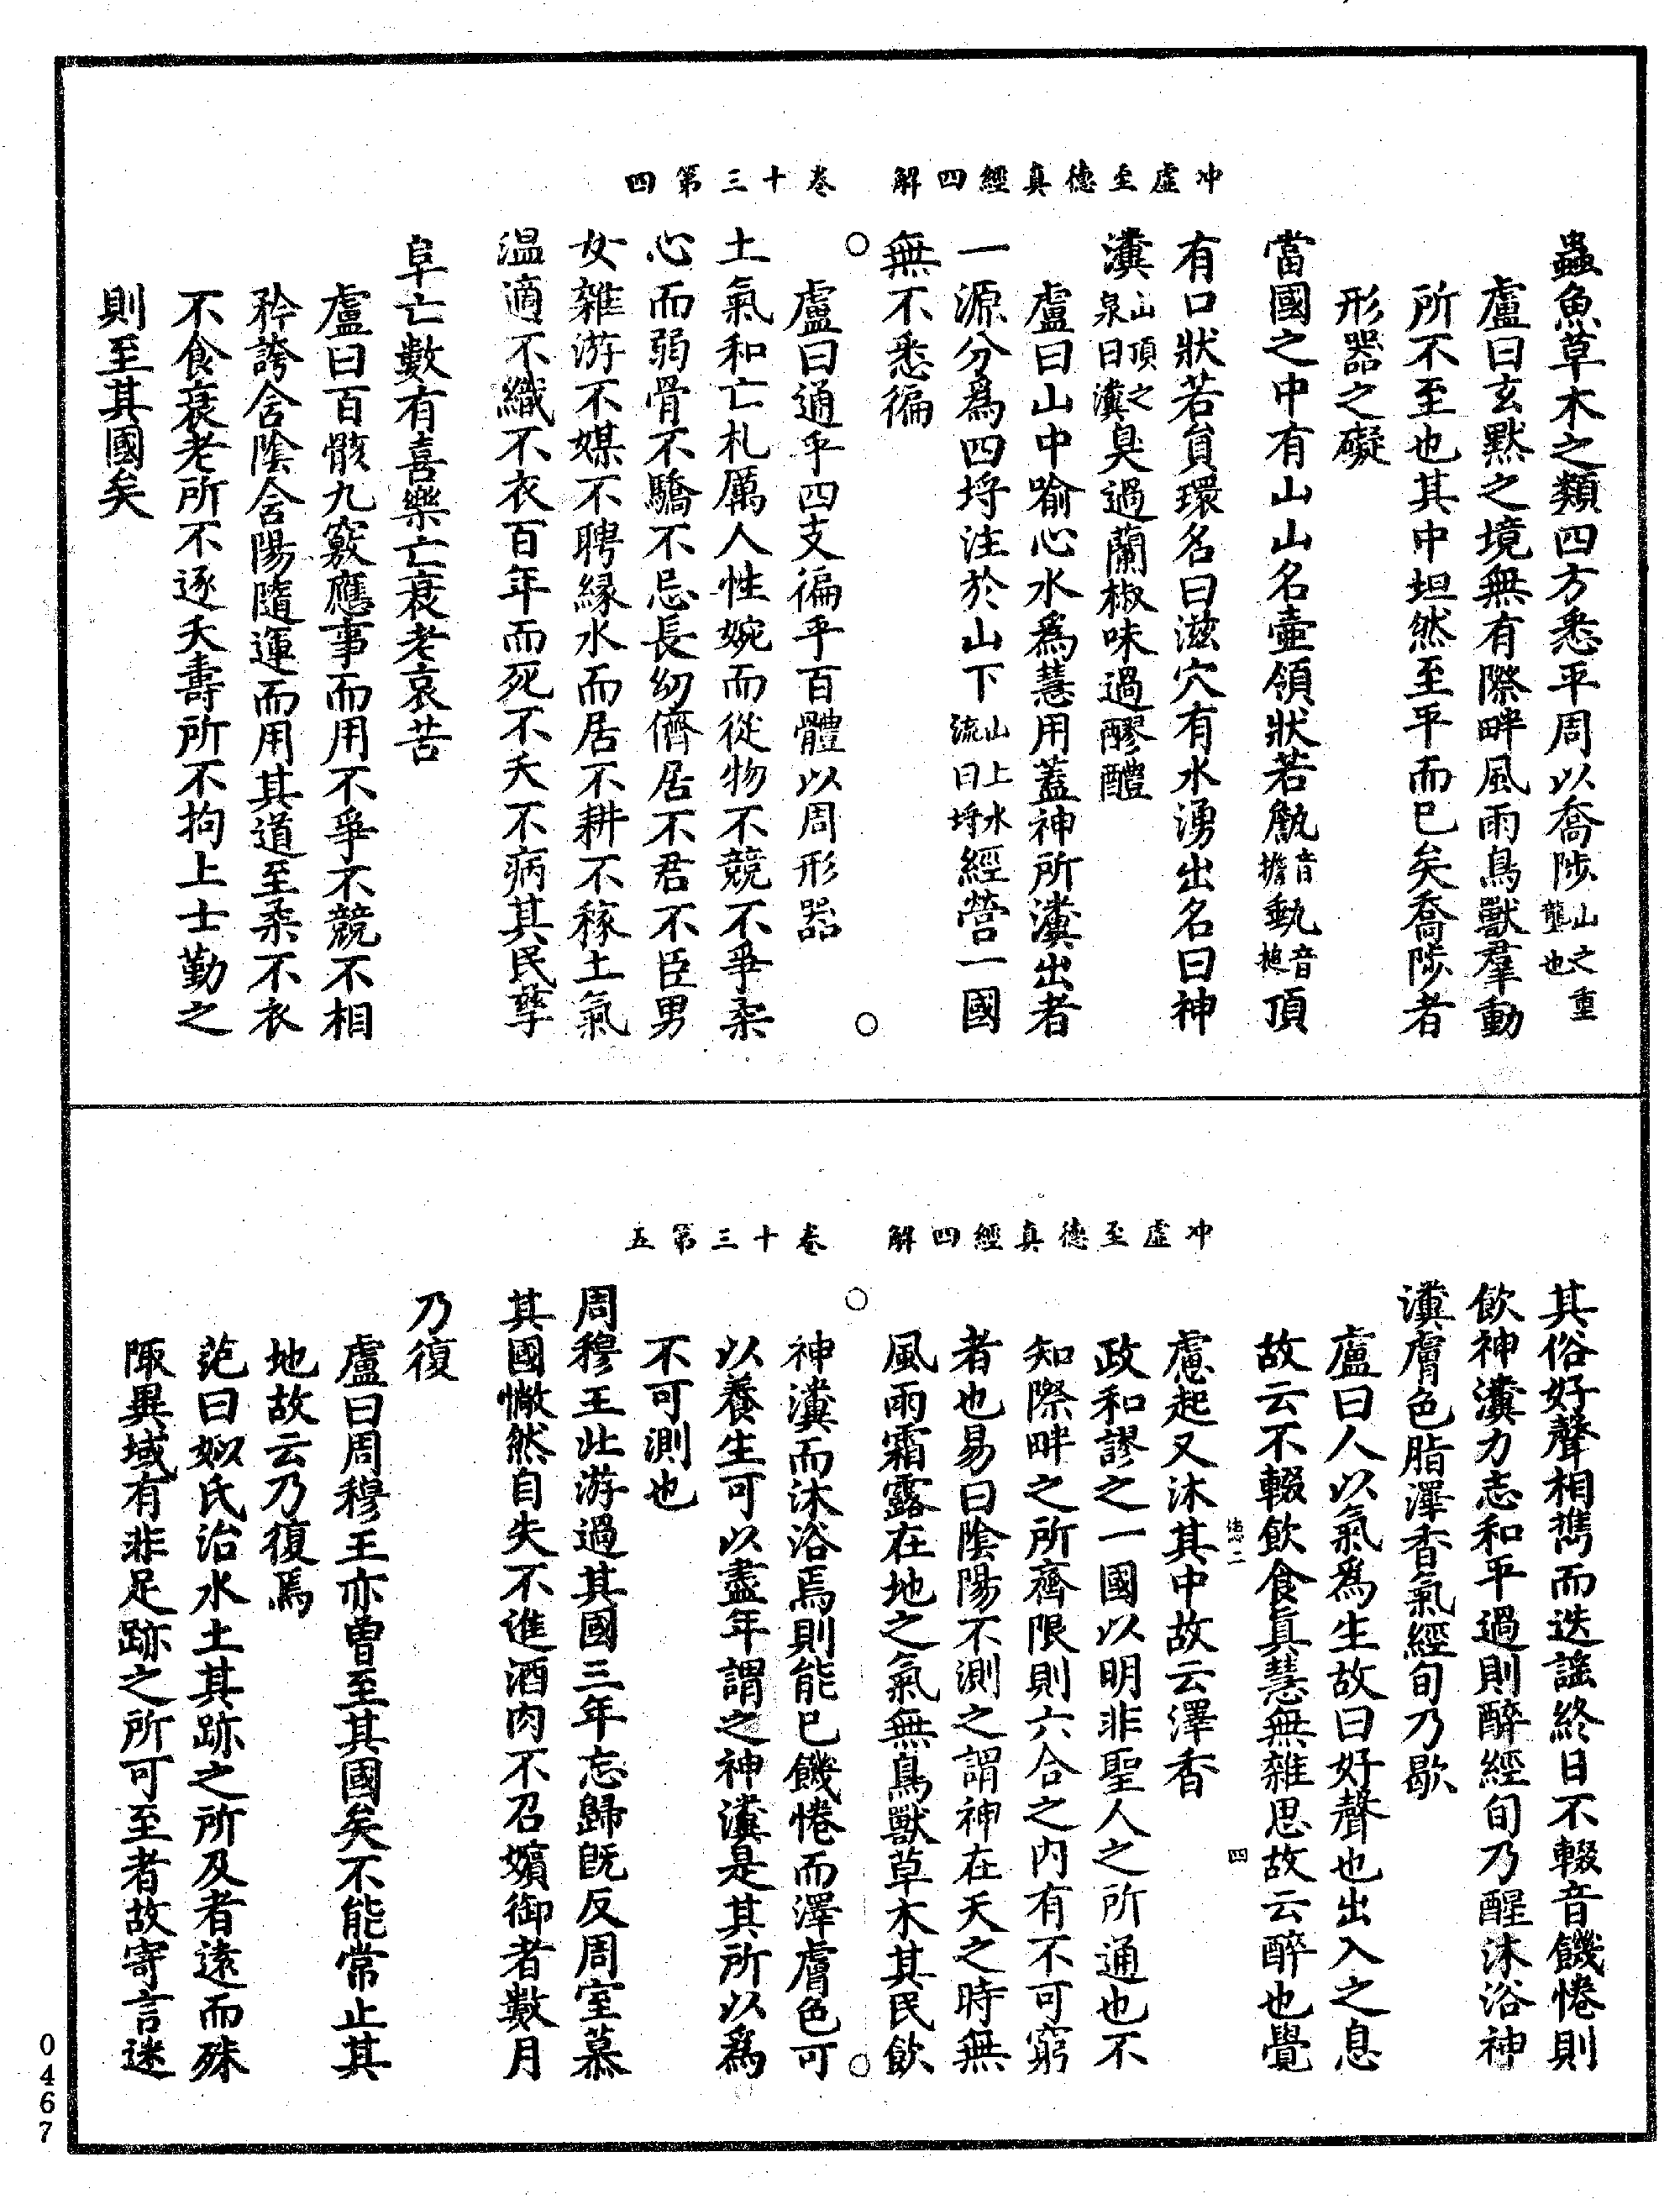 冲虛至德真經四解　卷十三第四
蟲魚草木之類四方悉平周以喬陟山之重壟也
盧曰玄默之境無有際畔風雨鳥獸羣動
所不至也其中坦然至平而已矣喬陟者
形器之礙
當國之中有山山名壺領狀若甔音擔甀音搥頂
有口狀若負環名曰滋穴有水湧出名曰神
瀵山頂之泉曰瀵臭過蘭椒味過醪醴
盧曰山中喻心水爲慧用蓋神所瀵出者
一源分爲四埒注於山下山上水流曰埒經營一國
無不悉徧
盧曰通乎四支徧乎百體以周形器
土氣和亡札厲人性婉而從物不競不爭柔
心而弱骨不驕不忌長幼儕居不君不臣男
女雜游不媒不聘緣水而居不耕不稼土氣
温適不織不衣百年而死不夭不病其民孳
阜亡數有喜樂亡衰老哀苦
盧曰百骸九竅應事而用不爭不競不相
矜誇含陰含陽隨運而用其道至柔不衣
不食衰老所不逐夭壽所不拘上士勤之
則至其國矣
冲虛至德真經四解　卷十三第五
其俗好聲相攜而迭謠終日不輟音饑惓則
飲神瀵力志和平過則醉經旬乃醒沐浴神
瀵膚色脂澤香氣經旬乃歇
盧曰人以氣爲生故曰好聲也出入之息
故云不輟飲食真慧無雜思故云醉也覺
慮起又沐其中故云澤香
政和謬之一國以明非聖人之所通也不
知際畔之所齊限則六合之内有不可窮
者也易曰陰陽不測之謂神在天之時無
風雨霜露在地之氣無鳥獸草木其民飲
神瀵而沐浴焉則能已饑惓而澤膚色可
以養生可以盡年謂之神瀵是其所以爲
不可測也
周穆王北游過其國三年忘歸旣反周室慕
其國懒然自失不進酒肉不召嬪御者數月
乃復
盧曰周穆王亦曾至其國矣不能常止其
地故云乃復焉
范曰姒氏治水土其跡之所及者遠而殊
陬異域有非足跡之所可至者故寄言迷
0467